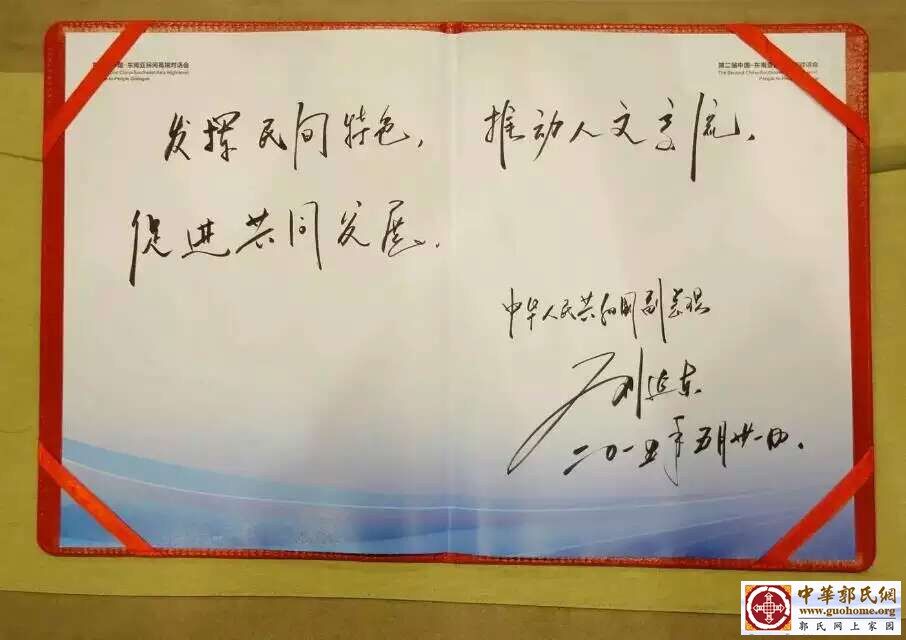 国-东南亚民间高端对话会
China-Southeast Asia High-level
People-to-People Dialogue
第二届中国-东南亚 对话会
The Second China-Southeast
People-to-People
发挥民间特色, 推动人文交流,
促进共同发展.
中华人民共和国副总理
刘延东
二〇一五年五月廿一日.
中華郭氏網
www.guohome.org
郭氏网上家园